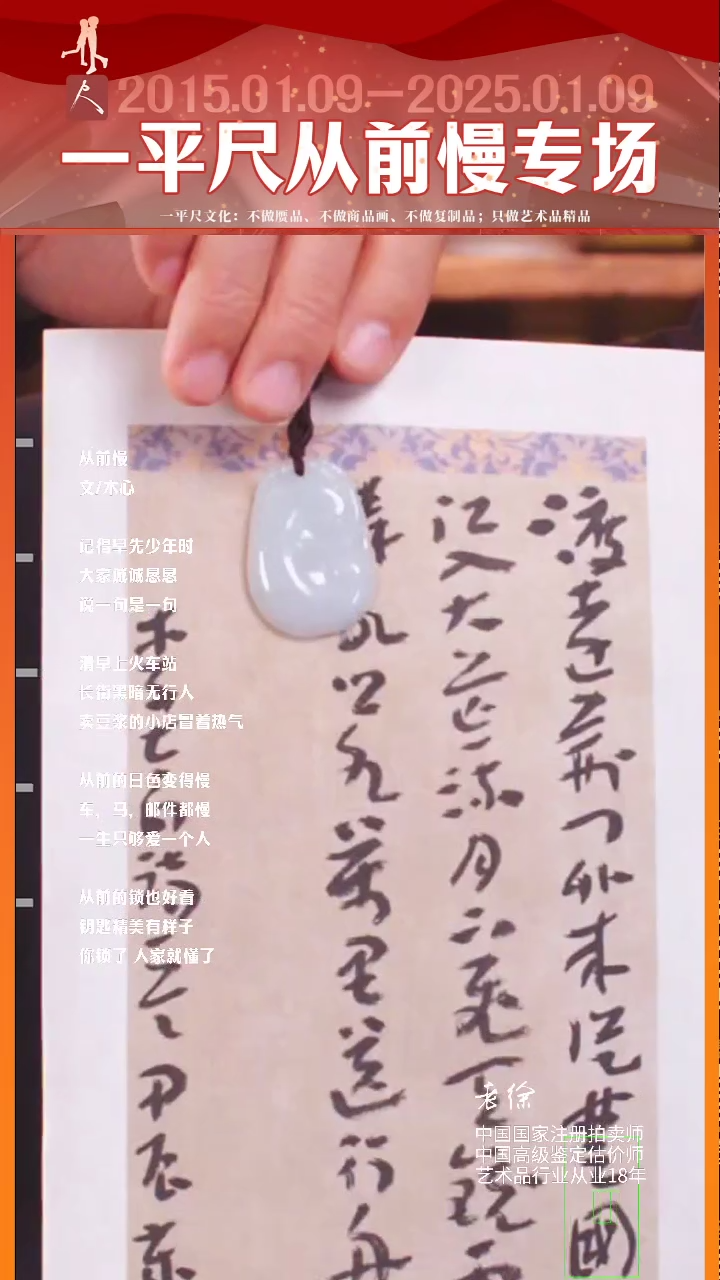 2015.01.09—2025.01.09
一平尺从前慢专场
一平尺文化：不做赝品、不做商品画、不做复制品；只做艺术品精品
从前慢
文/木心
记得早先少年时
大家诚诚恳恳
说一句是一句
清早上火车站
长街黑暗无行人
卖豆浆的小店冒着热气
从前的日色变得慢
车，马，邮件都慢
一生只够爱一个人
从前的锁也好看
钥匙精美有样子
你锁了 人家就懂了
渡遠荆门外来從楚國
江入大荒流月下飛天鏡
水萬里送行舟
甲辰
老徐
中国国家注册拍卖师
中国高级鉴定估价师
艺术品行业从业18年